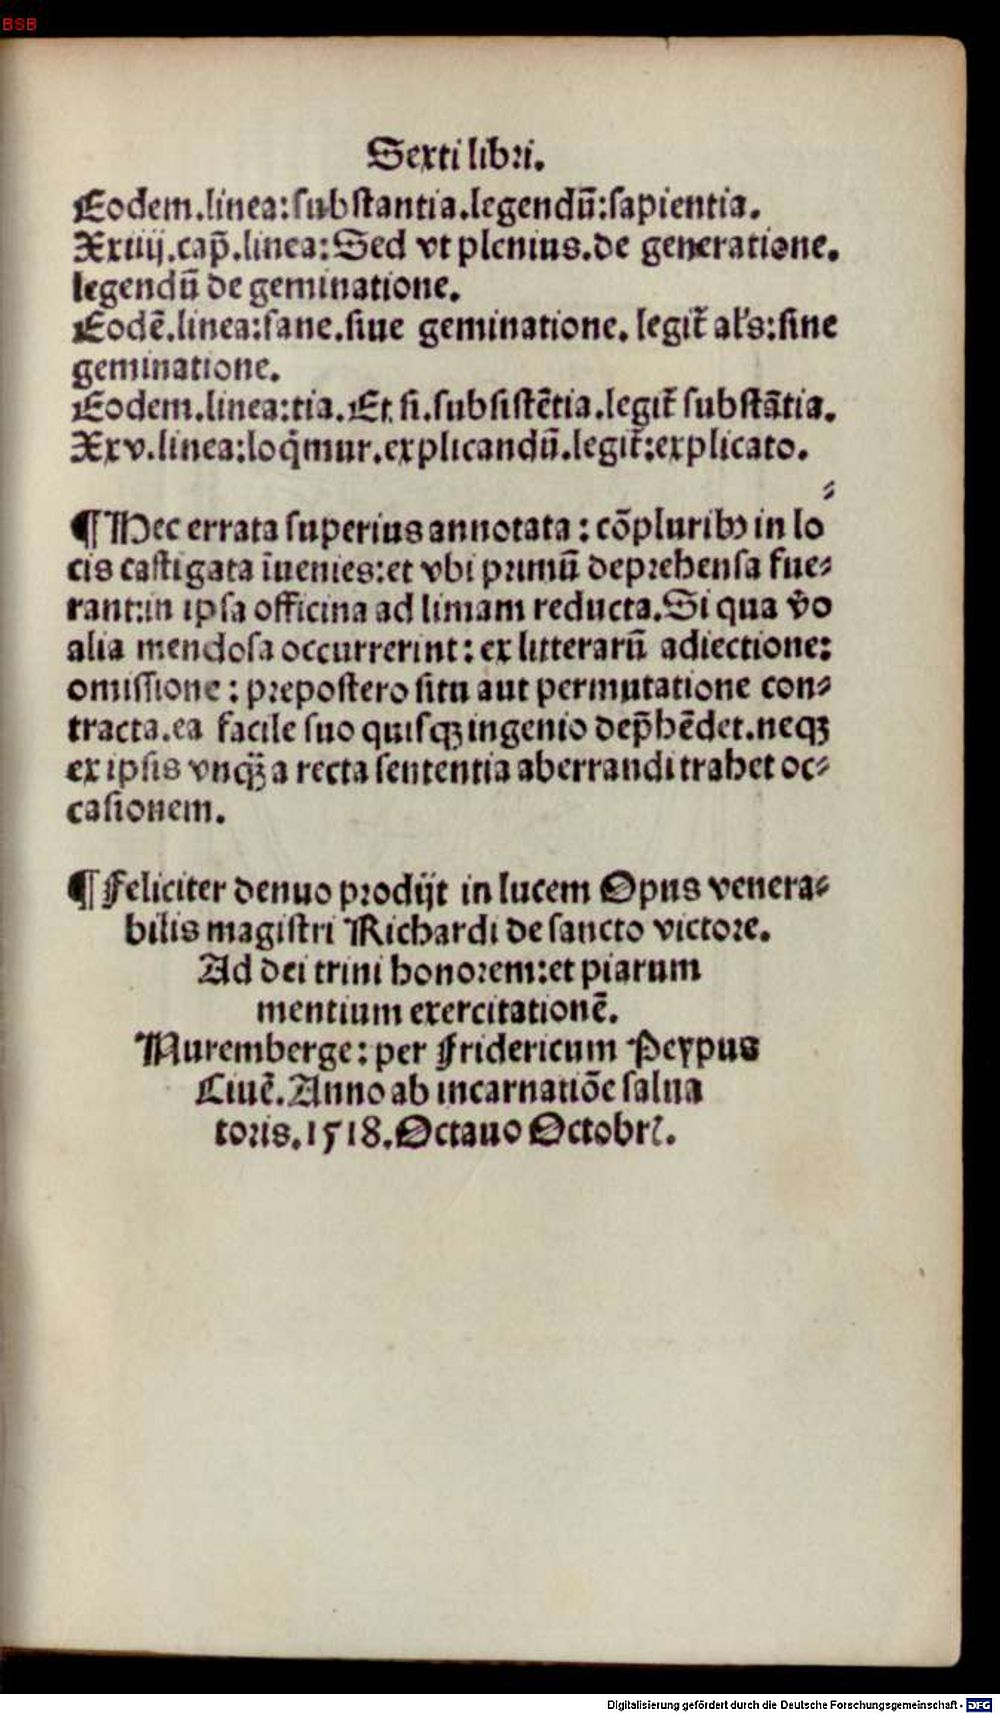 BSB
Sexti libri.
Eodem.linea:substantia.legendū:sapientia.
Xxiiij.cap̄.linea:Sed vt plenius.de generatione.
legendū de geminatione.
Eodē.linea:sane.siue geminatione. legit᷑ al's:sine
geminatione.
Eodem.linea:tia.Et si.subsistētia.legit᷑ substātia.
Xxv.linea:loq̄mur.explicandū.legit᷑:explicato.
¶ Hec errata superius annotata : cōpluribꝰ in lo⸗
cis castigata īuenies:et vbi primū deprehensa fue⸗
rant:in ipsa officina ad limam reducta.Si qua v̄o
alia mendosa occurrerint : ex litterarū adiectione:
omissione : prepostero situ aut permutatione con⸗
tracta.ea facile suo quisqꝫ ingenio dep̄hēdet.neqꝫ
ex ipsis vnqꝫ̄ a recta sententia aberrandi trahet oc⸗
casionem.
¶ Feliciter denuo prodijt in lucem Opus venera⸗
bilis magistri Richardi de sancto victore.
Ad dei trini honorem:et piarum
mentium exercitationē.
Nuremberge : per Fridericum Peypus
Ciuē. Anno ab incarnatiōe salua
toris.1518.Octauo Octobrꝭ.
Digitalisierung gefördert durch die Deutsche Forschungsgemeinschaft - DFG